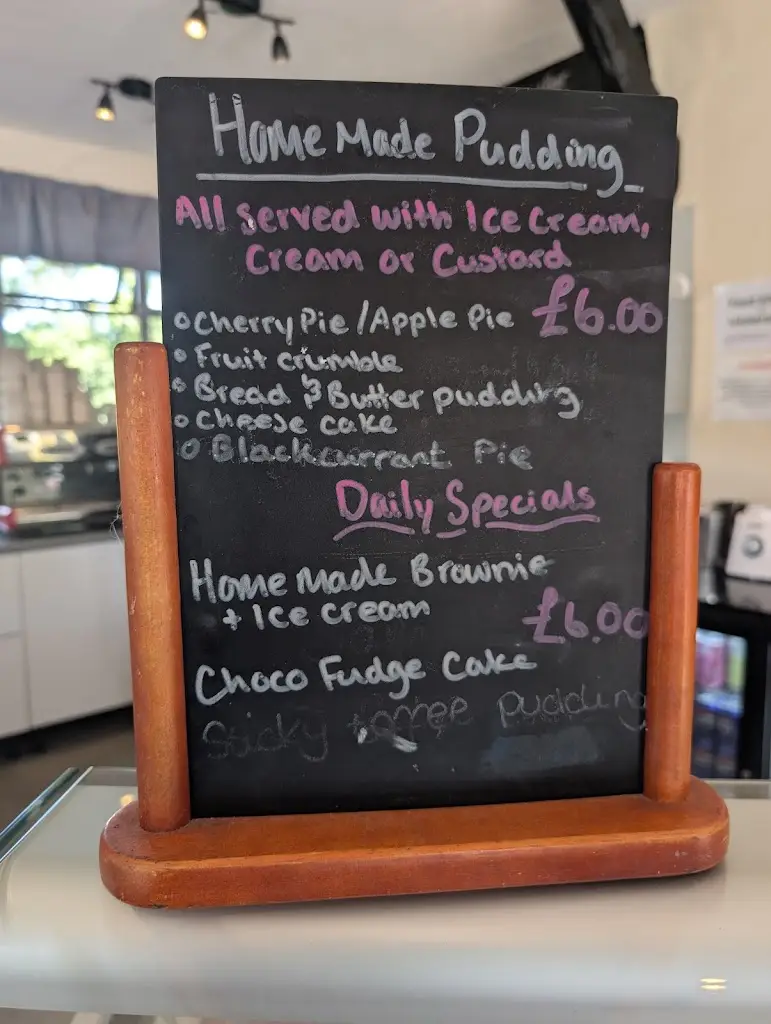 Home Made Pudding
All served with Ice Cream,
Cream or Custard
Cherry Pie / Apple Pie £6.00
Fruit crumble
Bread & Butter pudding
Cheese cake
Blackcurrant Pie
Daily Specials
Home Made Brownie
+ Ice cream £6.00
Choco Fudge Cake
Sticky toffee pudding